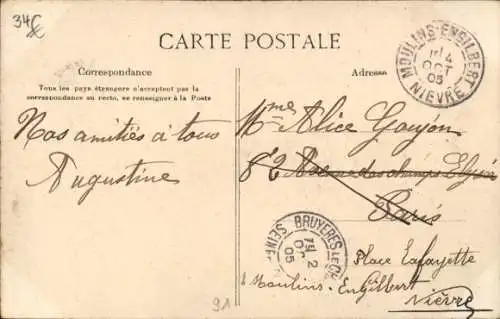 34€
CARTE POSTALE
Correspondance
Tous les pays étrangers n'acceptent pas la
correspondance au recto, se renseigner à la Poste
Nos amitiés à tous
Augustine
Adresse
Mme Alice Goujon
82 Avenue des champs Elysées
Paris
Place Lafayette
à Moulins-EnGilbert
Nièvre
MOULINS-ENGILBERT
4
OCT
05
NIEVRE
BRUYERES LE CH
SEINE
2
05
91